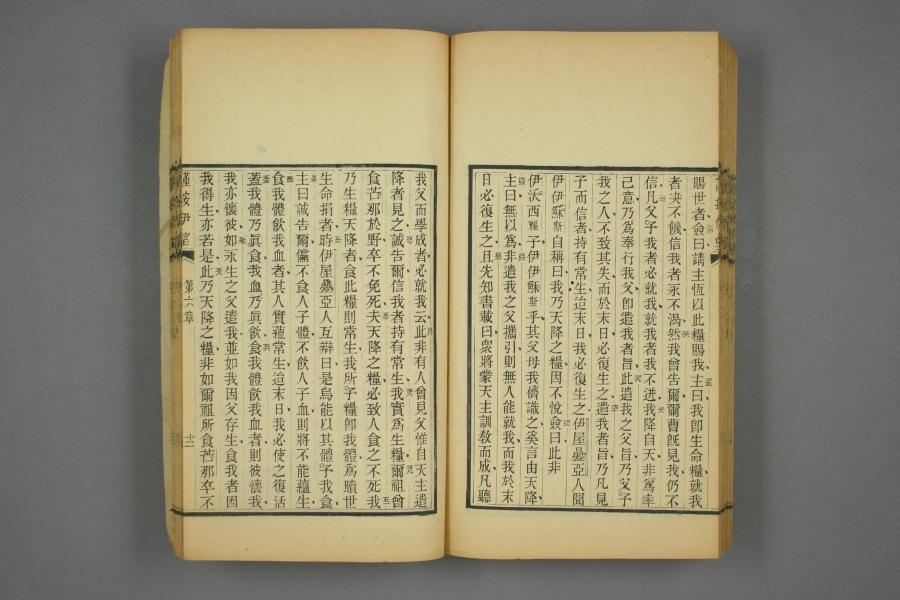 賜世者僉曰請主恆以此糧賜我主曰我卽生命糧就我
者決不饑信我者永不渴然我曾告爾爾曹旣見我仍不
信凡父予我者必就我就我者我不迸我降自天非爲率
己意乃爲奉行我父卽遣我者旨此遣我之父旨乃父予
我之人不致其失而於末日必復生之遣我者旨乃凡見
子而信者持有常生迨末日我必復生之伊屋叠亞人聞
伊伊穌斯自稱曰我乃天降之糧因不悅僉曰此非
伊沃西福子伊伊穌斯乎其父母我儕識之奚言由天降
主曰無以爲非遣我之父攜引則無人能就我而我於末
日必復生之且先知書載曰衆將蒙天主訓敎而成凡聽
我父而學成者必就我云此非有人曾見父惟自天主遣
降者見之誠告爾信我者持有常生我實爲生糧爾祖曾
食苦那於野卒不免死夫天降之糧必致人食之不死我
乃生糧天降者食此糧則常生我所予糧卽我體爲贖世
生命捐者時伊屋叠亞人互辯曰是烏能以其體予我食
主曰誠告爾儻不食人子體不飮人子血則將不能蘊生
食我體飮我血者其人實蘊常生迨末日我必使之復活
蓋我體乃眞食我血乃眞飮食我體飮我血者則彼懷我
我亦懷彼如永生之父遣我並如我因父存生食我者因
我得生亦若是此乃天降之糧非如爾祖所食苦那卒不
第六章
十二